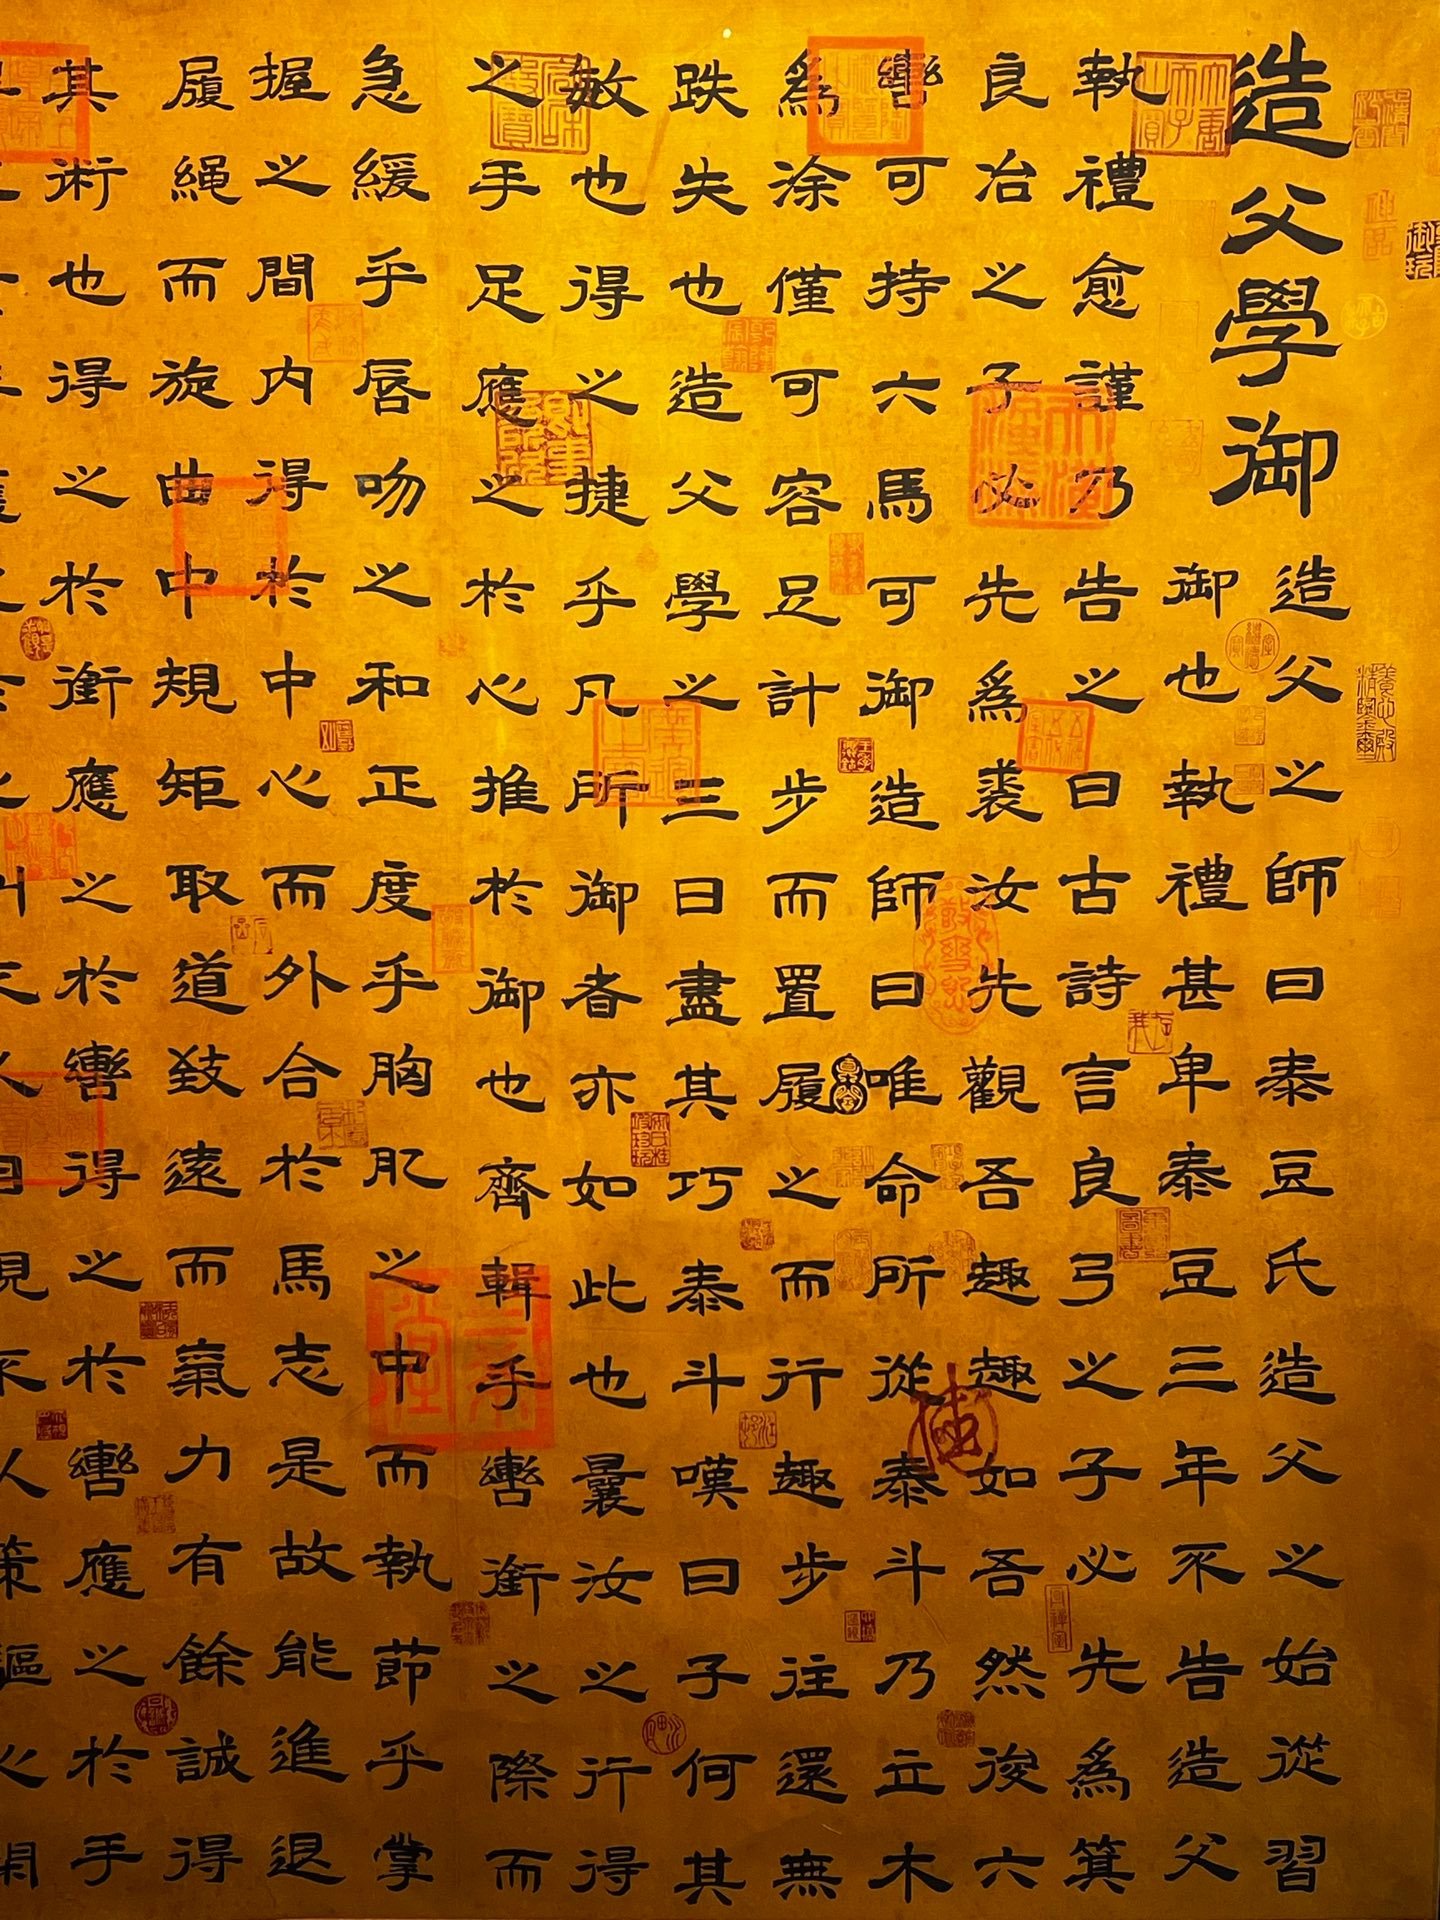 造父學御
造父之師曰泰豆氏造父之始從習
御也執禮甚卑泰豆三年不告造父
執禮愈謹乃告之曰古詩言良弓之子必先爲箕
良冶之子必先爲裘汝先觀吾趣趣如吾然後六
轡可持六馬可御造師曰唯命所從泰斗乃立木
爲涂僅可容足計步而置履之而行趣步往還無
跌失也造父學之三日盡其巧泰斗嘆曰子何其
敏也得之捷乎凡所御者亦如此也曩汝之行得
之手足應之於心推於御也齊輯乎轡銜之際而
急緩乎唇吻之和正度乎胸肊之中而執節乎掌
握之間內得於中心而外合於馬志是故能進退
履繩而旋曲中規矩取道致遠而氣力有餘誠得
其術也得之於銜應之於轡得之於轡應之於手